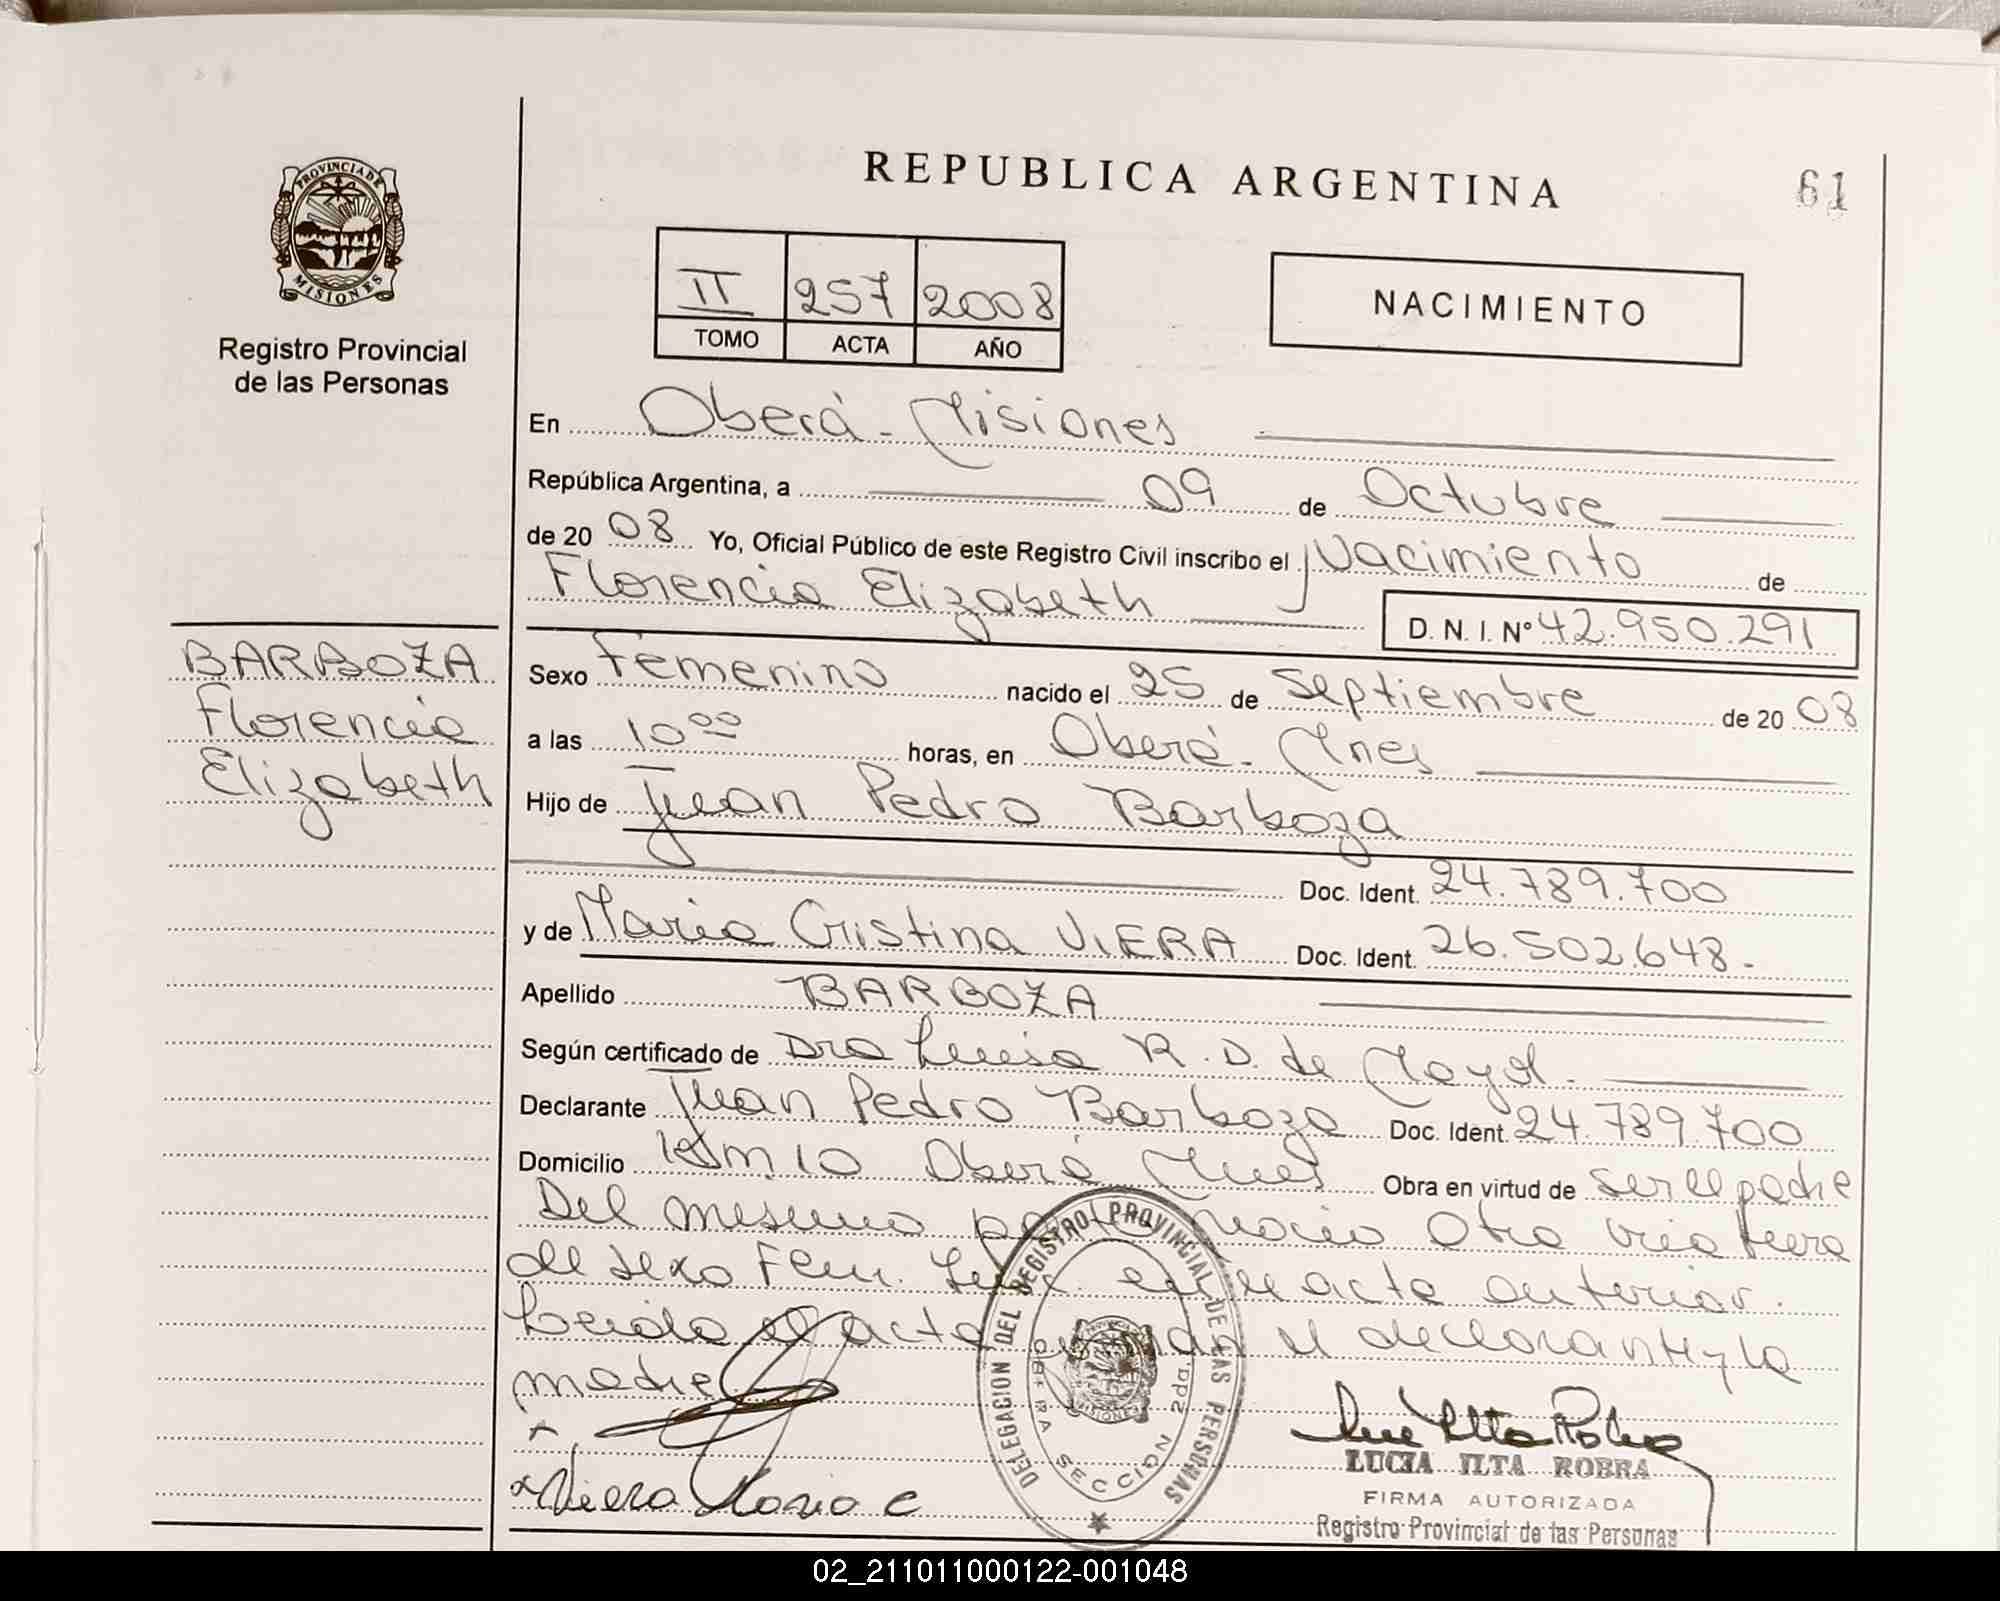 REPUBLICA ARGENTINA
61
PROVINCIA DE
MISIONES
Registro Provincial
de las Personas
II 257 2008
TOMO ACTA AÑO
NACIMIENTO
En Oberá - Misiones
República Argentina, a 09 de Octubre
de 20 08 Yo, Oficial Público de este Registro Civil inscribo el Nacimiento de
Florencia Elizabeth
D. N. I. Nº 42.950.291
BARBOZA
Florencia
Elizabeth
Sexo Femenino nacido el 25 de Septiembre de 20 08
a las 10 00 horas, en Oberá - Mnes
Hijo de Juan Pedro Barboza
Doc. Ident. 24.789.700
y de Maria Cristina VIERA Doc. Ident. 26.502.648.-
Apellido BARBOZA
Según certificado de Dra Luisa R. D. de Mayol.
Declarante Juan Pedro Barboza Doc. Ident. 24.789.700
Domicilio Km 10 Oberá Mnes Obra en virtud de ser el padre
Del mismo parto nacio otra criatura
de sexo Fem. en el acta anterior.
Leida el acta firman el declarante y la
madre
x
x Viera Maria C
DELEGACION DEL REGISTRO PROVINCIAL DE LAS PERSONAS
SECCION 2da.
LUCIA ILTA ROBRA
FIRMA AUTORIZADA
Registro Provincial de las Personas
02_211011000122-001048